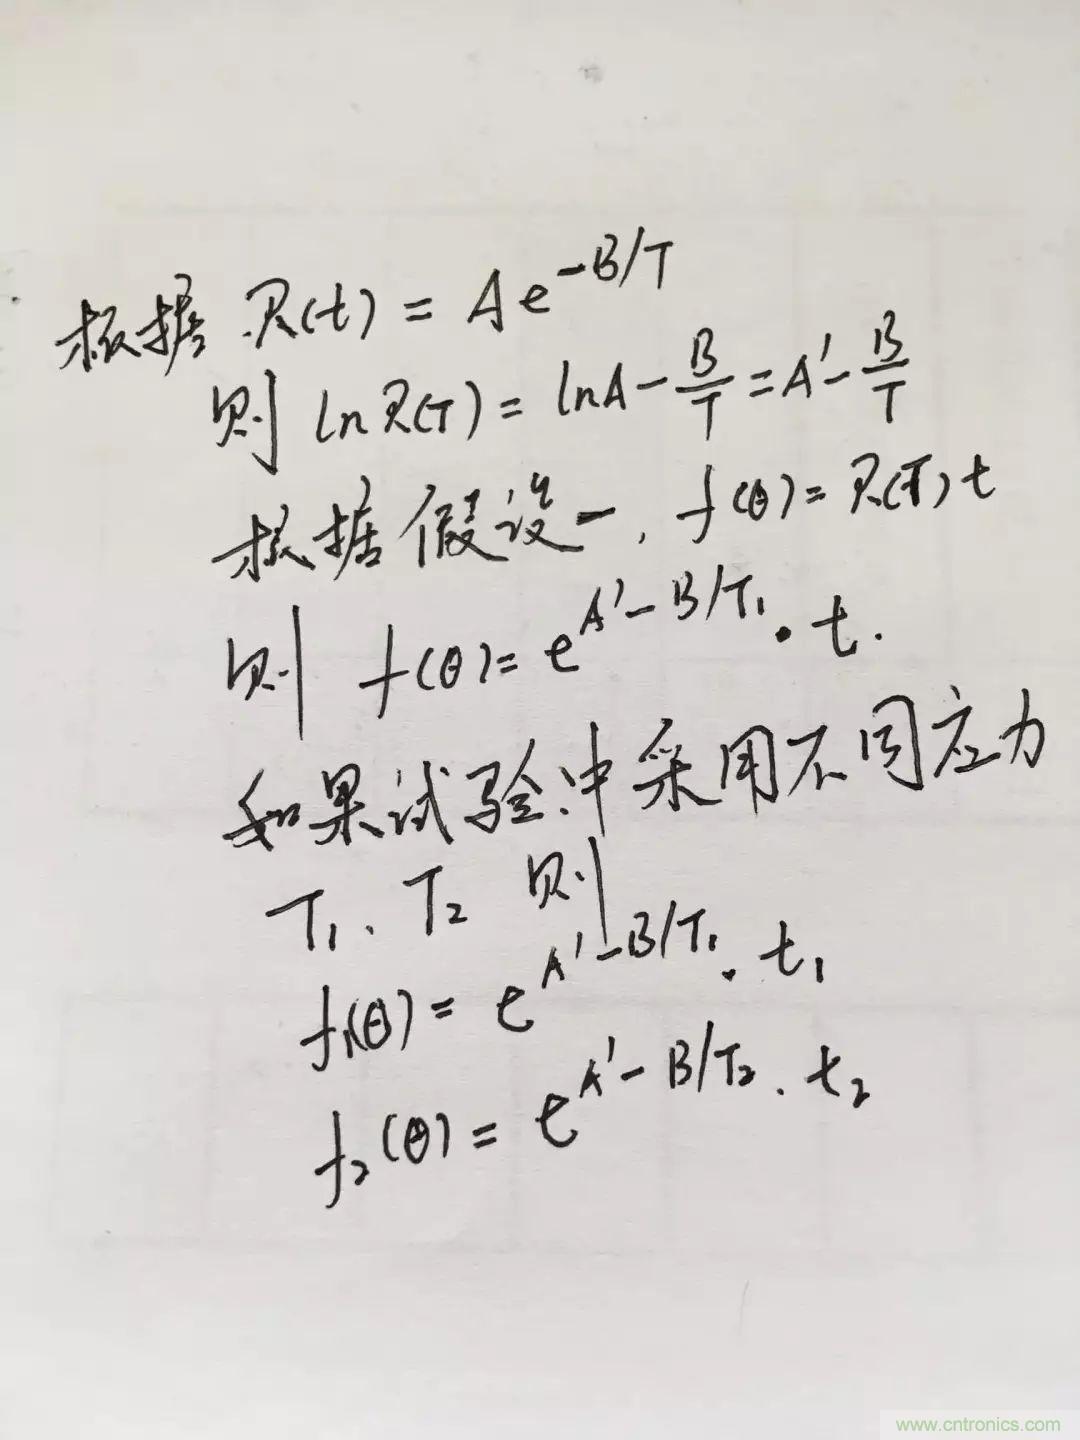 根据 R(t) = Ae^{-B/T}
则 ln R(T) = lnA - B/T = A' - B/T
根据假设一, f(θ) = R(T) t
则 f(θ) = e^{A'-B/T₁} · t.
如果试验中采用不同应力
T₁、T₂ 则
f₁(θ) = e^{A'-B/T₁} · t₁
f₂(θ) = e^{A'-B/T₂} · t₂
www.cntronics.com